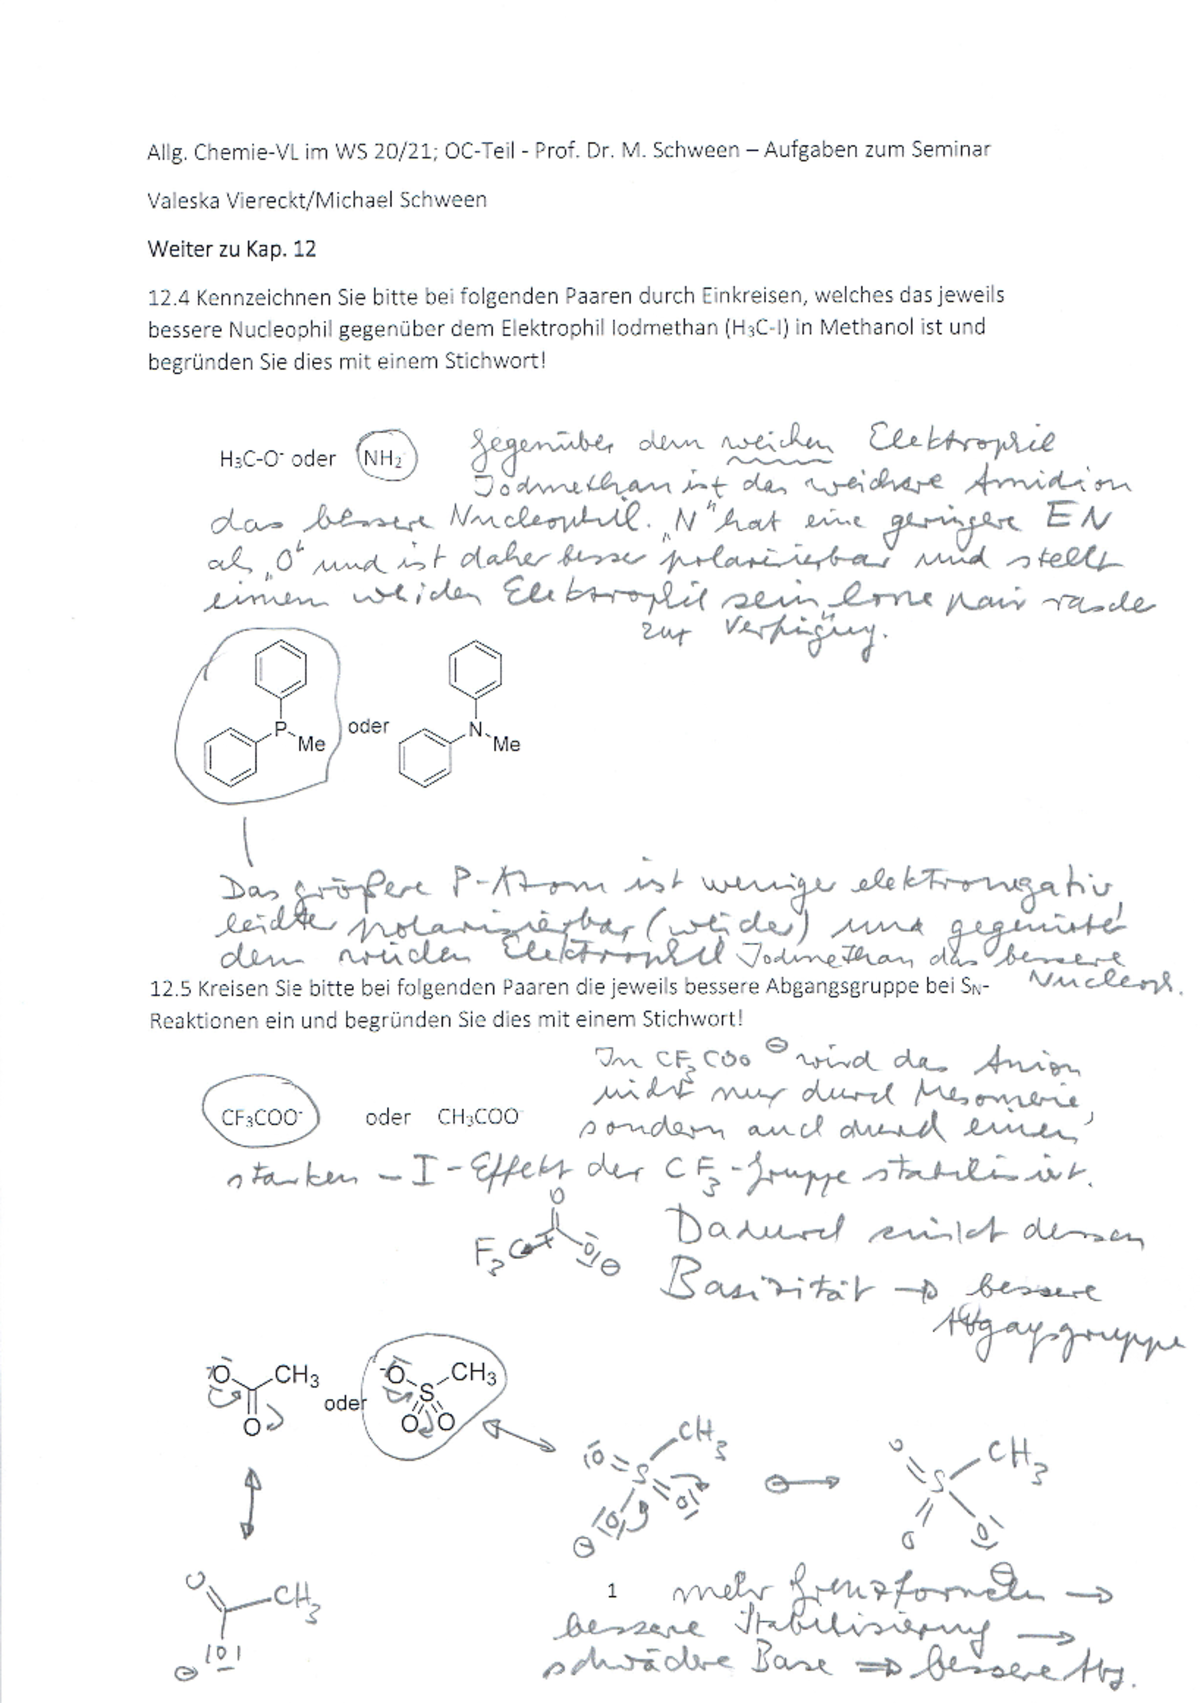 Allg. Chemie-VL im WS 20/21; OC-Teil - Prof. Dr. M. Schween – Aufgaben zum Seminar
Valeska Viereckt/Michael Schween
Weiter zu Kap. 12
12.4 Kennzeichnen Sie bitte bei folgenden Paaren durch Einkreisen, welches das jeweils
bessere Nucleophil gegenüber dem Elektrophil Iodmethan (H₃C-I) in Methanol ist und
begründen Sie dies mit einem Stichwort!
H₃C-O⁻ oder NH₂⁻
Gegenüber dem weichen Elektrophil
Iodmethan ist das weichere Amidion
das bessere Nucleophil. „N" hat eine geringere EN
als „O" und ist daher besser polarisierbar und stellt
einem weichen Elektrophil sein „lone pair" rascher
zur Verfügung.
P Me oder N Me
Das größere P-Atom ist weniger elektronegativ,
leichter polarisierbar (weicher) und gegenüber
dem weichen Elektrophil Iodmethan das bessere
Nucleoph.
12.5 Kreisen Sie bitte bei folgenden Paaren die jeweils bessere Abgangsgruppe bei SN-
Reaktionen ein und begründen Sie dies mit einem Stichwort!
CF₃COO⁻ oder CH₃COO⁻
In CF₃COO⊖ wird das Anion
nicht nur durch Mesomerie,
sondern auch durch einen
starken –I-Effekt der CF₃-Gruppe stabilisiert.
O
F₃C O⊖
Dadurch sinkt dessen
Basizität → bessere
Abgangsgruppe
⁻O CH₃ O oder ⁻O CH₃ S O O
O CH₃ S O O⊖
O CH₃ S O O⊖
O CH₃ O⊖
1
mehr Grenzformeln →
bessere Stabilisierung →
schwächere Base ⇒ bessere Abg.